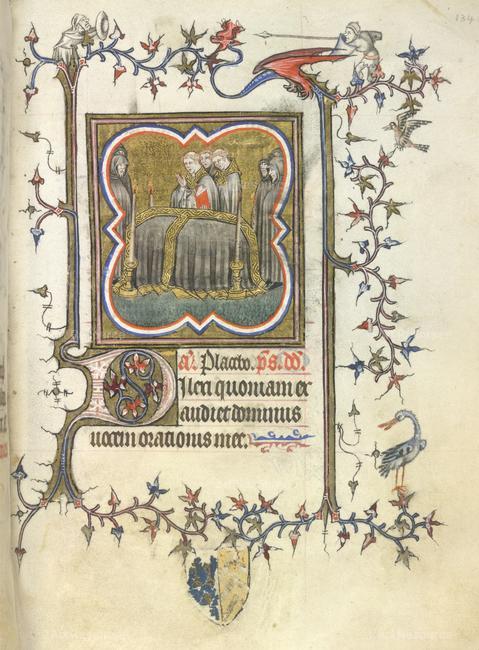 134
a͞. Placebo. p͞s. d͞d.
Dilexi quoniam ex
audiet dominus
uocem orationis mee.